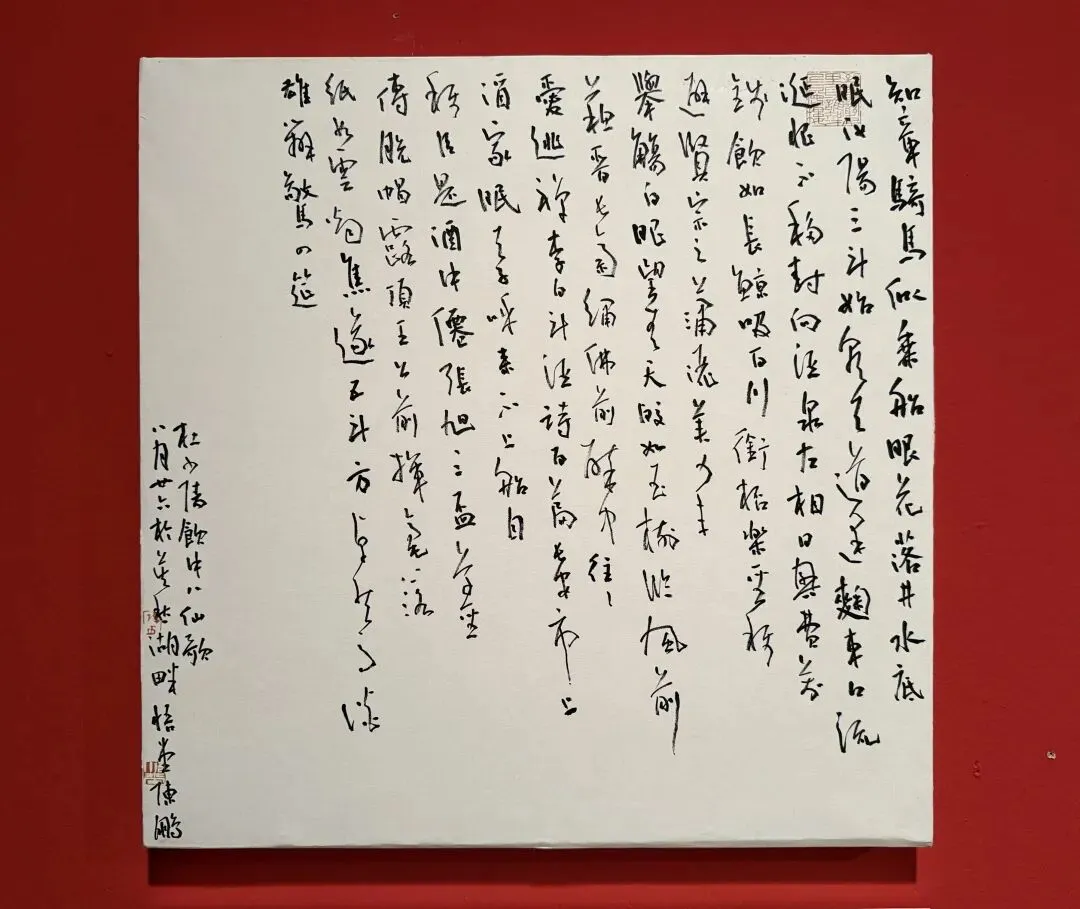 知章騎馬似乘船眼花落井水底
眠汝陽三斗始朝天道逢麴車口流
涎恨不移封向酒泉左相日興費萬
錢飲如長鯨吸百川銜杯樂聖稱
避賢宗之瀟灑美少年
舉觴白眼望青天皎如玉樹臨風前
蘇晉長齋繡佛前醉中往〻
愛逃禪李白斗酒詩百篇長安市上
酒家眠天子呼來不上船自
稱臣是酒中僊張旭三盃草聖
傳脫帽露頂王公前揮毫落
紙如雲烟焦遂五斗方卓然高談
雄辯驚四筵
杜少陵飲中八仙歌
八月廿六於莫愁湖畔悟堂陳鵬